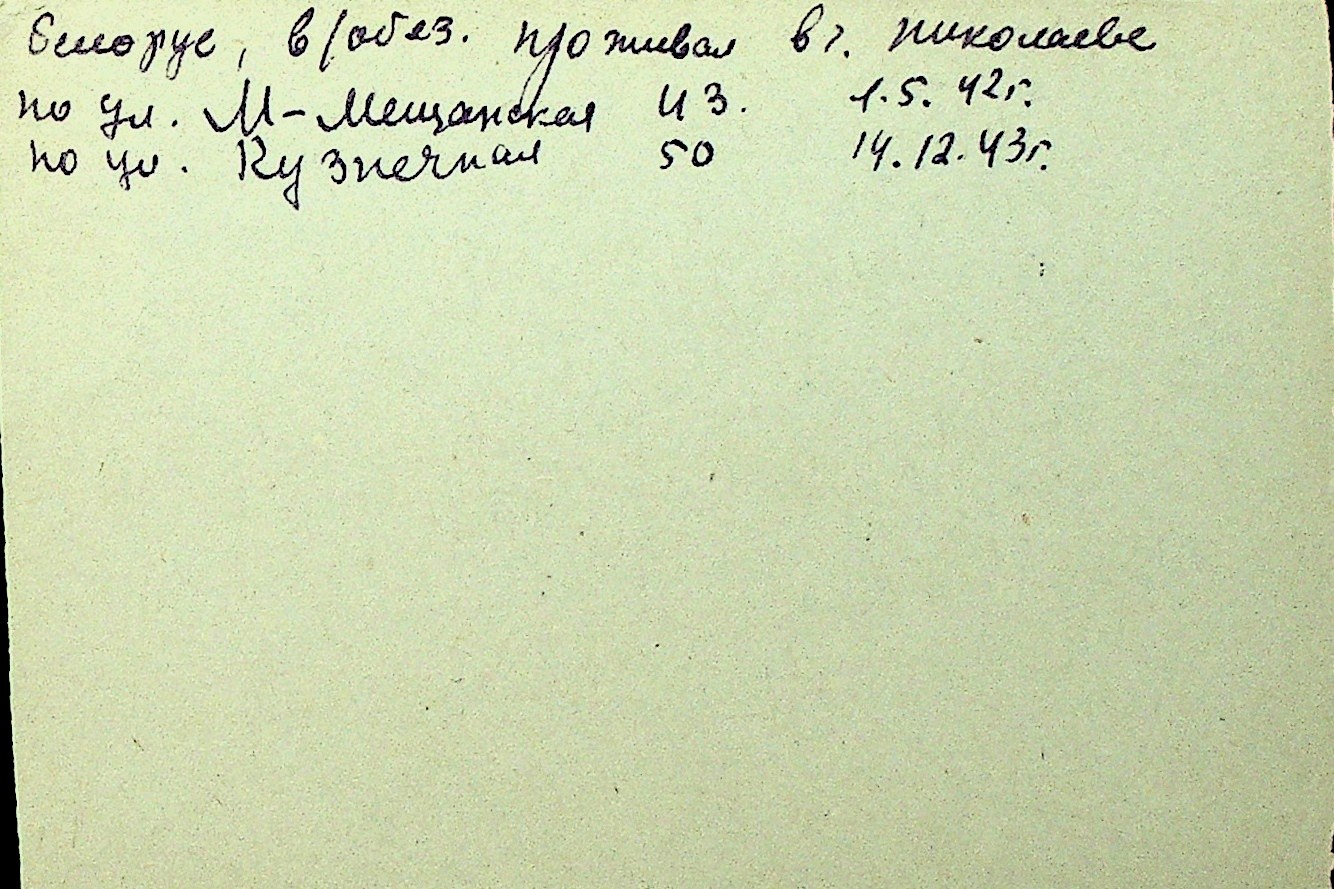 белорус, в/обяз. проживал в г. николаеве
по ул. М-Мещанская 43. 1.5.42г.
по ул. Кузнечная 50 14.12.43г.